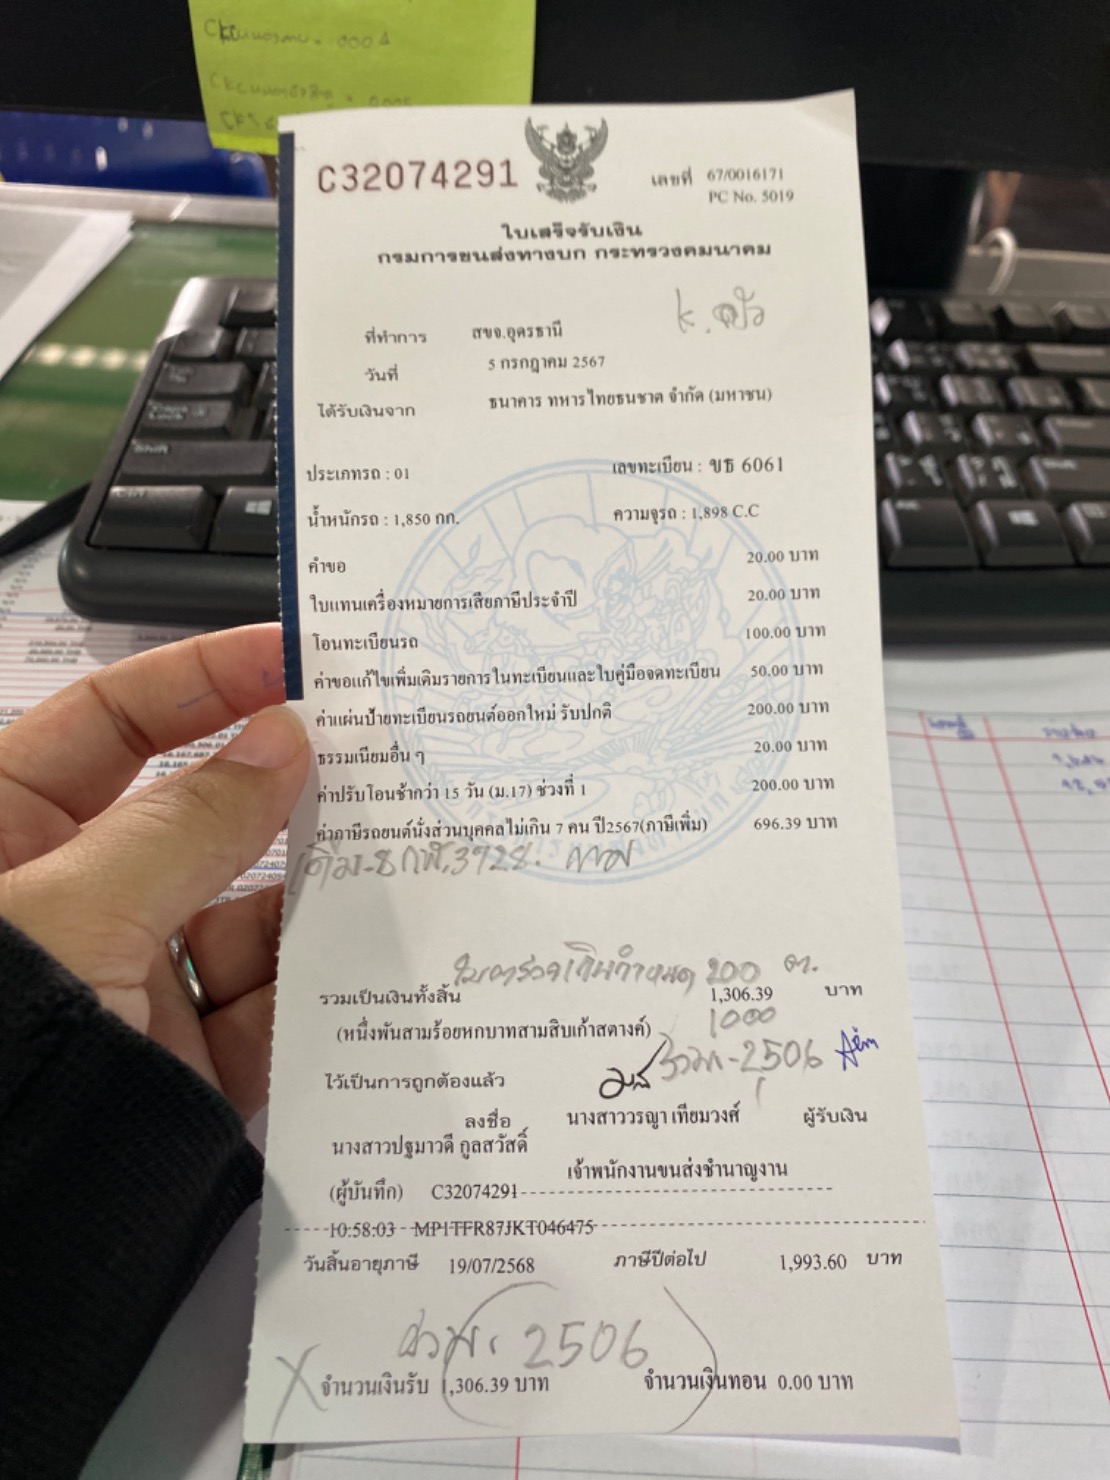 C32074291
เลขที่ 67/0016171
PC No. 5019
ใบเสร็จรับเงิน
กรมการขนส่งทางบก กระทรวงคมนาคม
ที่ทำการ สขจ.อุดรธานี
วันที่ 5 กรกฎาคม 2567
ได้รับเงินจาก ธนาคาร ทหารไทยธนชาต จำกัด (มหาชน)
ประเภทรถ : 01 เลขทะเบียน : ขธ 6061
น้ำหนักรถ : 1,850 กก. ความจุรถ : 1,898 C.C
คำขอ 20.00 บาท
ใบแทนเครื่องหมายการเสียภาษีประจำปี 20.00 บาท
โอนทะเบียนรถ 100.00 บาท
ค่าขอแก้ไขเพิ่มเติมรายการในทะเบียนและใบคู่มือจดทะเบียน 50.00 บาท
ค่าแผ่นป้ายทะเบียนรถยนต์ออกใหม่ รับปกติ 200.00 บาท
ธรรมเนียมอื่น ๆ 20.00 บาท
ค่าปรับโอนช้ากว่า 15 วัน (ม.17) ช่วงที่ 1 200.00 บาท
ค่าภาษีรถยนต์นั่งส่วนบุคคลไม่เกิน 7 คน ปี2567(ภาษีเพิ่ม) 696.39 บาท
ใบตรวจเกินกำหนด 200
รวมเป็นเงินทั้งสิ้น 1,306.39 บาท
1000
(หนึ่งพันสามร้อยหกบาทสามสิบเก้าสตางค์)
รวม - 2,506
ไว้เป็นการถูกต้องแล้ว
ลงชื่อ นางสาววรญา เทียมวงศ์ ผู้รับเงิน
นางสาวปฐมาวดี กูลสวัสดิ์
เจ้าพนักงานขนส่งชำนาญงาน
(ผู้บันทึก) C32074291
10:58:03 MP1TFR87JKT046475
วันสิ้นอายุภาษี 19/07/2568 ภาษีปีต่อไป 1,993.60 บาท
2506
จำนวนเงินรับ 1,306.39 บาท จำนวนเงินทอน 0.00 บาท